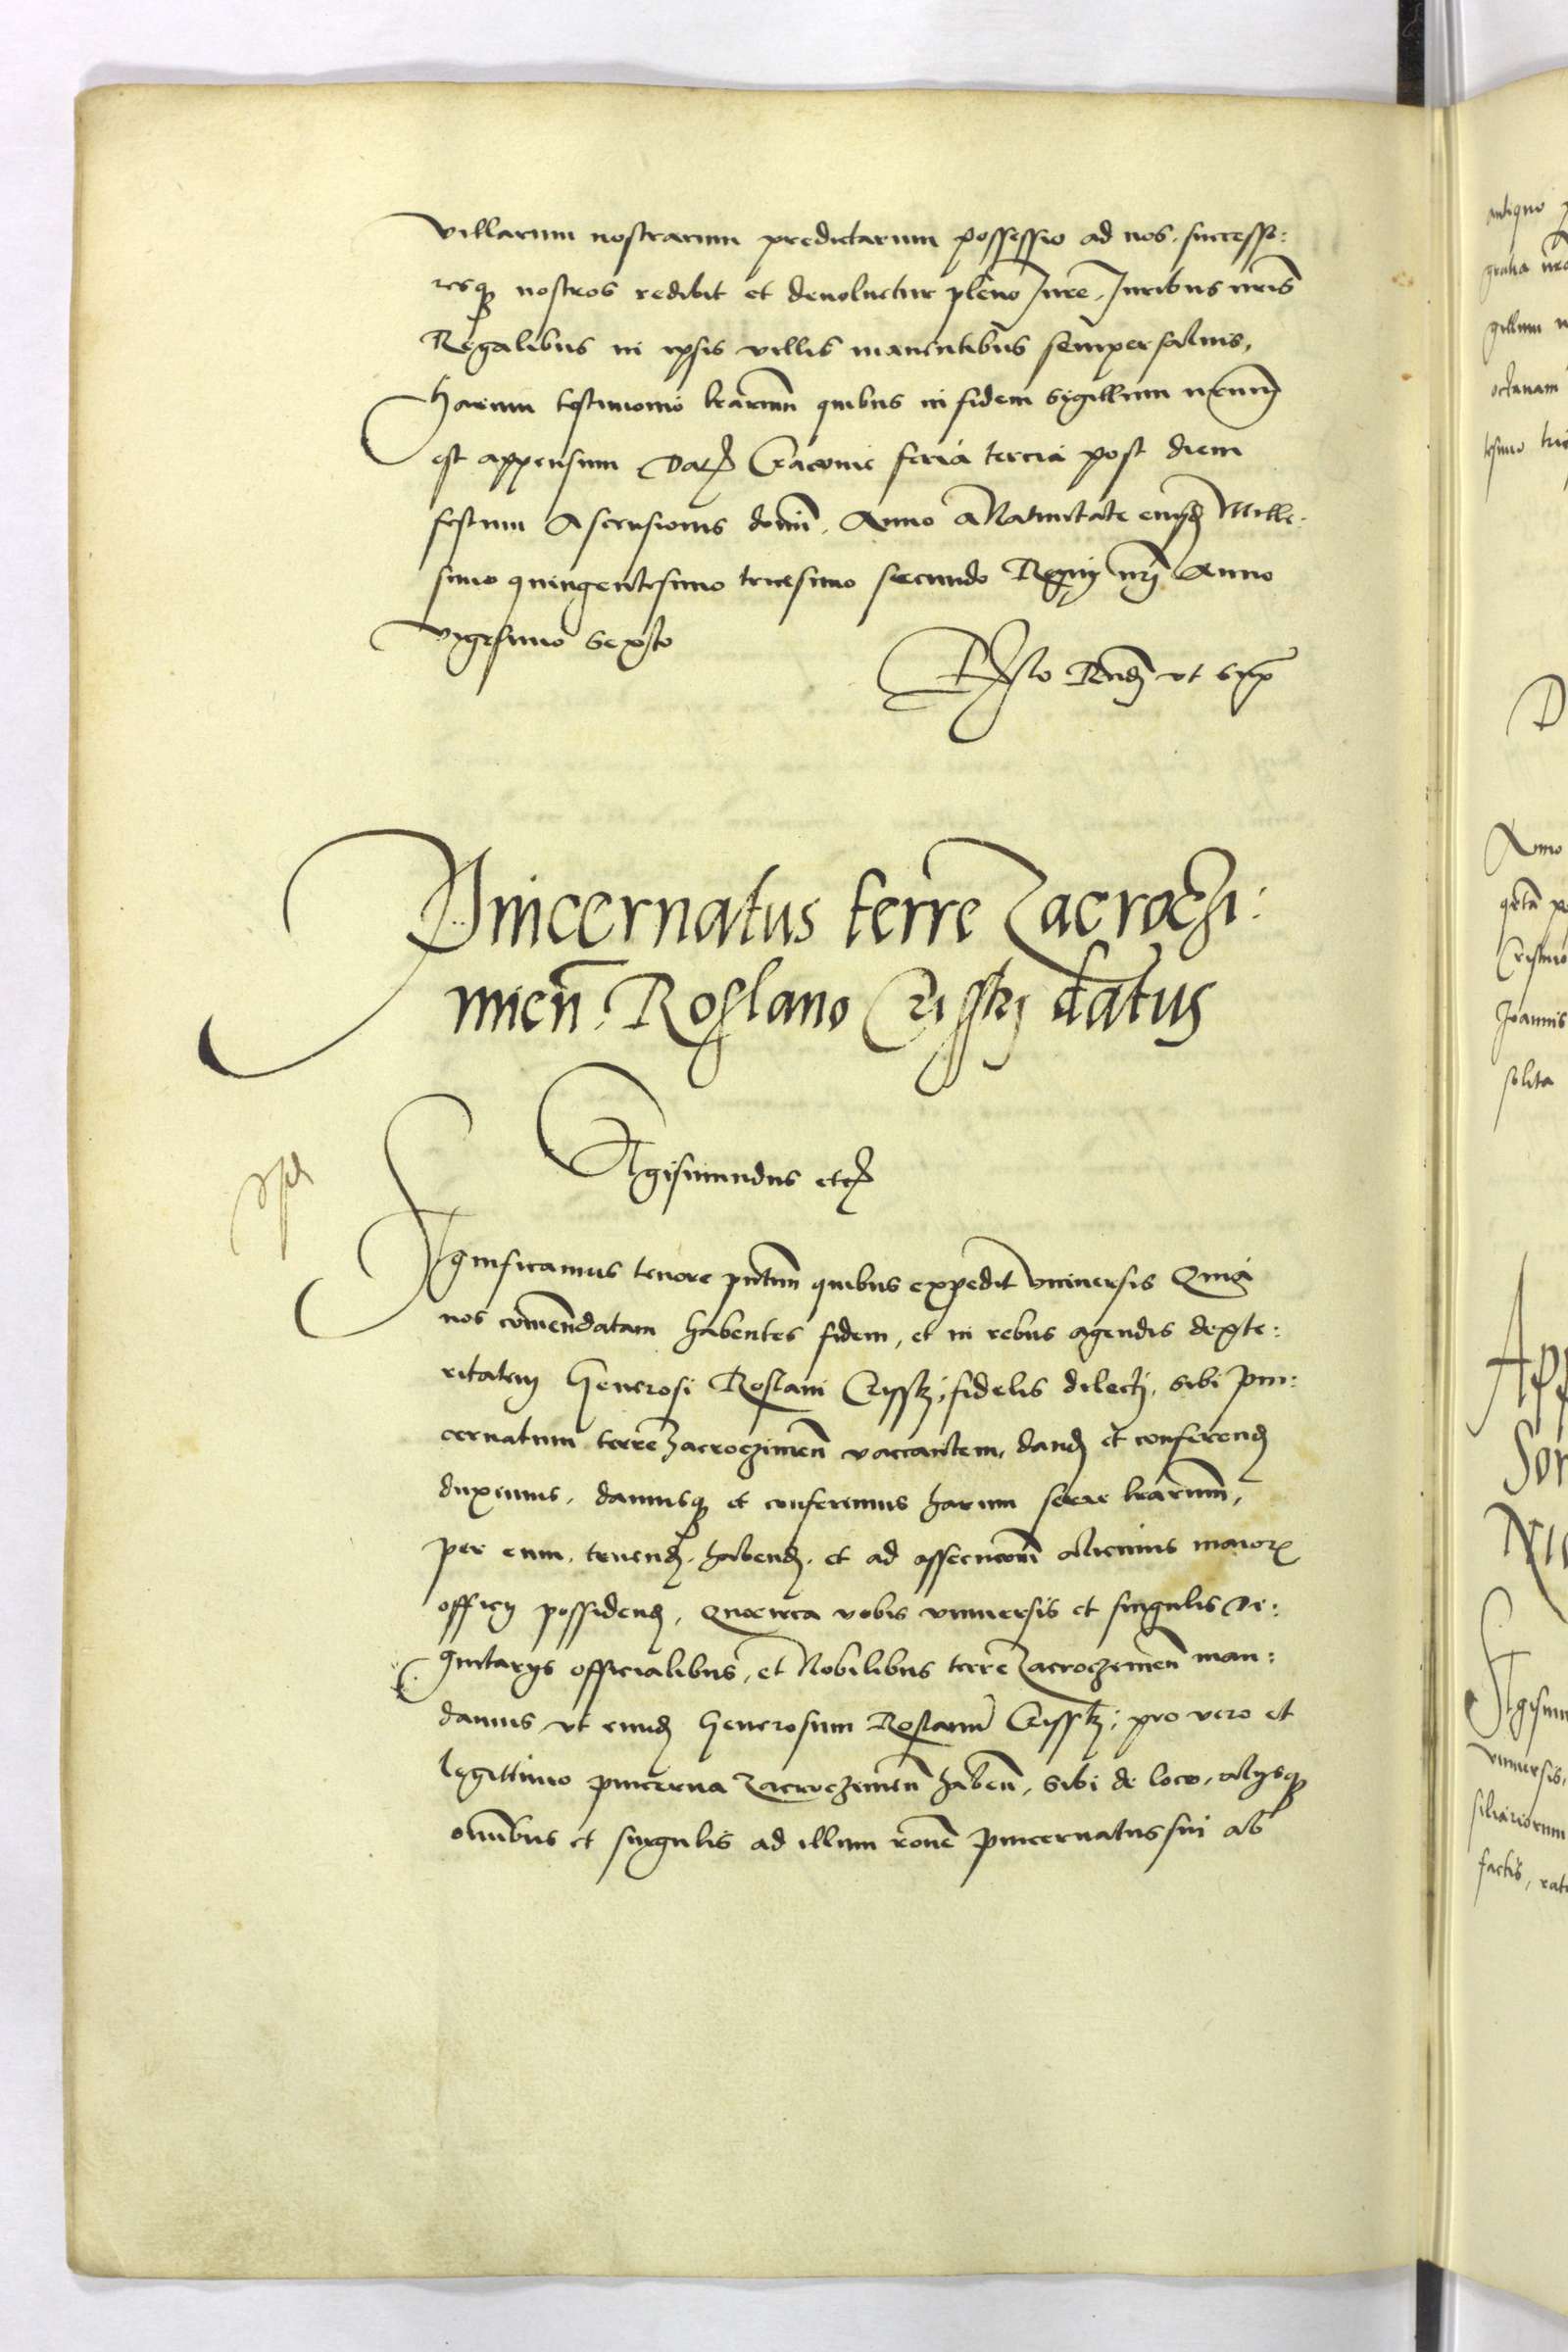 villarum nostrarum predictarum possessio ad nos, successo:
resq3 nostros redibit et devoluetur pleno Jure, Juribus nris
Regalibus in ipsis villis manentibus semper salvis,
Harum testimonio lrarum quibus in fidem sygillum nrum
est appensum Dat Cracovie feria tercia post diem
festum Ascensionis domini, Anno a Nativitate eiusd Mille-
simo quingentesimo tricesimo secundo Regni nri Anno
vigesimo sexto
Rndi ut supra
Pincernatus terre Zacroczi:
mien. Roslano Crisski datus
Sigismundus etc
Significamus tenore pntium quibus expedit universis Quia
nos comendatam habentes fidem, et in rebus agendis dexte:
ritatem Generosi Roslani Crisski, fidelis dilecti, sibi pin:
cernatum terre Zacroczimien vaccantem, dand et conferend
duximus, damusq3 et conferimus harum serie lrarum,
per eum, tenend, habend, et ad assecucionem alicuius maioris
officij possidend, Quocirca vobis universis et singulis Di:
gnitarijs officialibus, et Nobilibus terre Zacroczimien man:
damus, ut eund Generosum Roslanum Crisski, pro vero et
legittimo pincerna Zacroczimien haben, sibi de loco, alijsq3
omnibus et singulis ad illum rone pincernatus sui ab
antiquo
gratia
gillum
octavam
Anno
Joannis
solita
App
Sor
Sigism
universis,
siliariorum
factis, rat